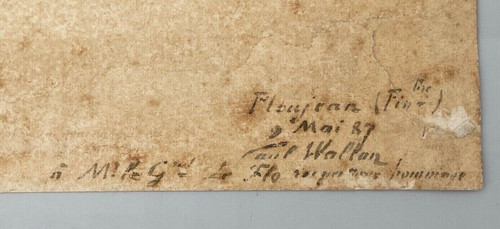 Floujean (Fin^re)
9 Mai 87
Paul Wallan
à M^r le G^ral Le Flo respectueux hommage